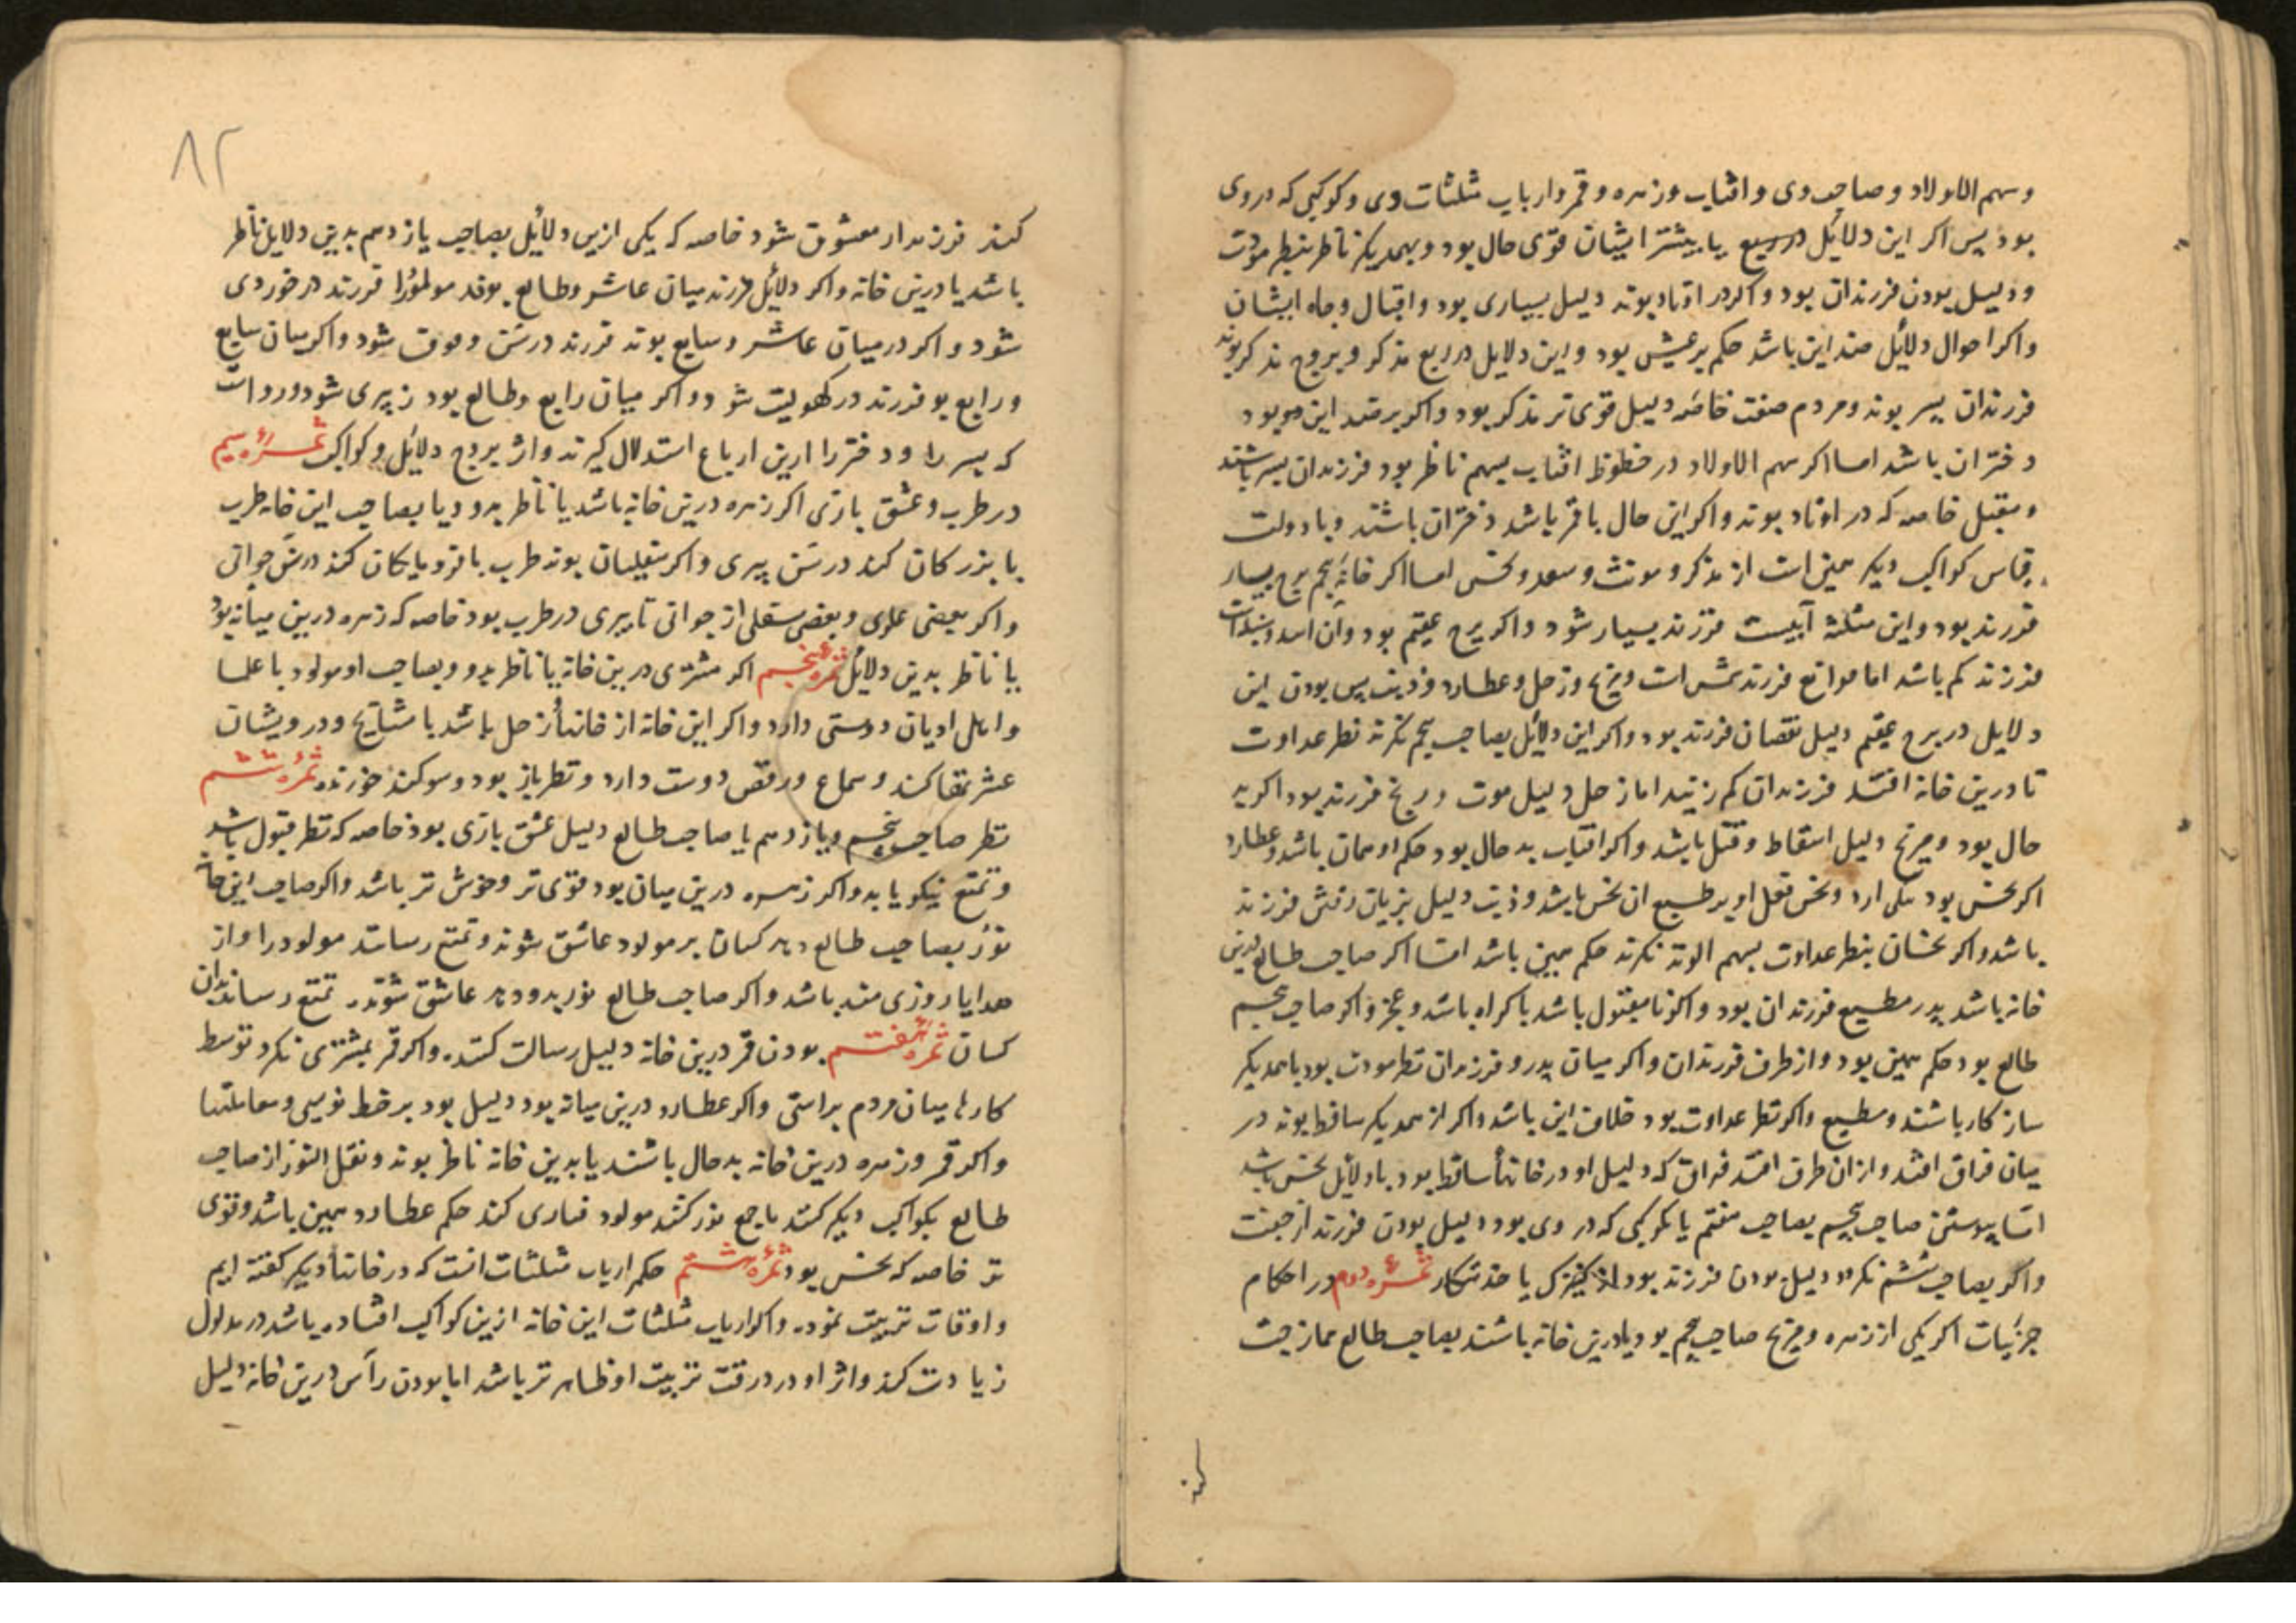 وسهم الاولاد و صاحب وی و افتاب و زهره و قمر و ارباب مثلثات وی و کوکبی که در وی
بود پس اکر این دلائل در ربع یا بیشتر ایشان قوی حال بود و بهمدیکر ناظر بنظر مودت
و دلیل بودن فرزندان بود و اکر در اوتاد بوند دلیل بسیاری بود و اقبال و جاه ایشان
و اکر احوال دلائل ضد این باشد حکم برعکس بود و این دلایل در ربع مذکر و بروج مذکر بوند
فرزندان پسر بوند و مردم صفت خاصه دلیل قوی تر مذکر بود و اکر بر ضد این بود
دختران باشد اما اکر سهم الاولاد در حظوظ افتاب بسهم ناظر بود فرزندان پسر باشند
و مقبل خاصه که در اوتاد بوند و اکر این حال با قمر باشد دختران باشند و با دولت
قیاس کواکب دیکر همین است از مذکر و مونث و سعد و نحس اما اکر خانه پنجم برج بسیار
فرزند بود و این مثلثه آبیست فرزند بسیار شود و اکر برج عقیم بود و آن اسد و سنبله است
فرزند کم باشد اما موانع فرزند شمس است و مریخ و زحل و عطارد و ذنب پس بودن این
دلایل در برج عقیم دلیل نقصان فرزند بود و اکر این دلائل بصاحب پنجم نکرند نظر عداوت
تا درین خانه افتند فرزندان کم زیند اما زحل دلیل موت و رنج فرزند بود اکر بد
حال بود و مریخ دلیل اسقاط و قتل باشد و اکر افتاب بد حال بود حکم او همان باشد و عطارد
اکر نحس بود فعل او بر طبع ان نحس باشد و ذنب دلیل بزیان رفتن فرزند
باشد و اکر نحسان بنظر عداوت بسهم الولد نکرند حکم همین باشد اما اکر صاحب طالع درین
خانه باشد پدر مطیع فرزندان بود و اکر نامقبول باشد باکراه باشد و عجز و اکر صاحب پنجم
طالع بود حکم همین بود و از طرف فرزندان و اکر میان پدر و فرزندان نظر مودت بود باهمدیکر
سازکار باشند و مطیع و اکر نظر عداوت بود خلاف این باشد و اکر از همدیکر ساقط بوند در
میان فراق افتد و از ان طرف افتد فراق که دلیل او در خانها ساقط بود یا دلائل نحس باشد
اما پیوستن صاحب پنجم بصاحب هفتم یا کوکبی که در وی بود دلیل بودن فرزند از جفت
و اکر بصاحب ششم نکرد دلیل بودن فرزند بود از کنیزک یا خدمتکار ثمره دوم در احکام
جزئیات اکر یکی از زهره و مریخ صاحب پنجم بود یا درین خانه باشند بصاحب طالع ممازجت
کند
۸۲
کند فرزند او معشوق شود خاصه که یکی ازین دلائل بصاحب یازدهم بدین دلایل ناظر
باشد یا درین خانه و اکر دلائل فرزند میان عاشر و طالع بوند مولود را فرزند در خوردی
شود و اکر در میان عاشر و سابع بوند فرزند در سن وقوف شود و اکر میان سابع
و رابع بو فرزند در کهولیت شود و اکر میان رابع و طالع بود ز پیری شود و رواست
که پسر را و دختر را ازین ارباع استدلال کیرند و از بروج دلائل و کواکب ثمره سیم
در طرب و عشق بازی اکر زهره درین خانه باشد یا ناظر بدو و یا بصاحب این خانه طرب
با بزرکان کند در سن پیری و اکر سفلیان بوند طرب با فرومایکان کند در سن جوانی
و اکر بعضی علوی و بعضی سفلی از جوانی تا پیری در طرب بود خاصه که زهره درین میانه بود
یا ناظر بدین دلائل ثمره پنجم اکر مشتری درین خانه یا ناظر بدو و بصاحب او مولود با علما
و اهل ادیان دوستی دارد و اکر این خانه از خانهاء زحل باشد با مشایخ و درویشان
عشر تقاکند و سماع و رقص دوست دارد و نظرباز بود و سوکند خورنده ثمره ششم
نظر صاحب پنجم و یازدهم با صاحب طالع دلیل عشق بازی بود خاصه که نظر قبول باشد
و تمتع نیکو یابد و اکر زهره درین میان بود قوی تر و خوش تر باشد و اکر صاحب این خانه
نور بصاحب طالع دهد کسان بر مولود عاشق شوند و تمتع رسانند مولود را و از
هدایا روزی مند باشد و اکر صاحب طالع نور بدو دهد عاشق شوند و تمتع رساند بدان
کسان ثمره هفتم بودن قمر درین خانه دلیل رسالت کنند و اکر قمر بمشتری نکرد توسط
کارها میان مردم براستی و اکر عطارد درین میانه بود دلیل بود بر خط نویسی و معاملتها
و اکر قمر و زهره درین خانه بد حال باشند یا بدین خانه ناظر بوند و نقل النور از صاحب
طالع بکواکب دیکر کنند یا جمع نور کنند مولود قیادی کند حکم عطارد همین باشد و قوی
تر خاصه که نحس بود ثمره هشتم حکم ارباب مثلثات انست که در خانهاء دیکر کفته ایم
و اوقات تربیت نموده و اکر ارباب مثلثات این خانه ازین کواکب افتاده باشد در مدلول
زیادت کند و اثر او در وقت تربیت او ظاهر تر باشد اما بودن رأس درین خانه دلیل